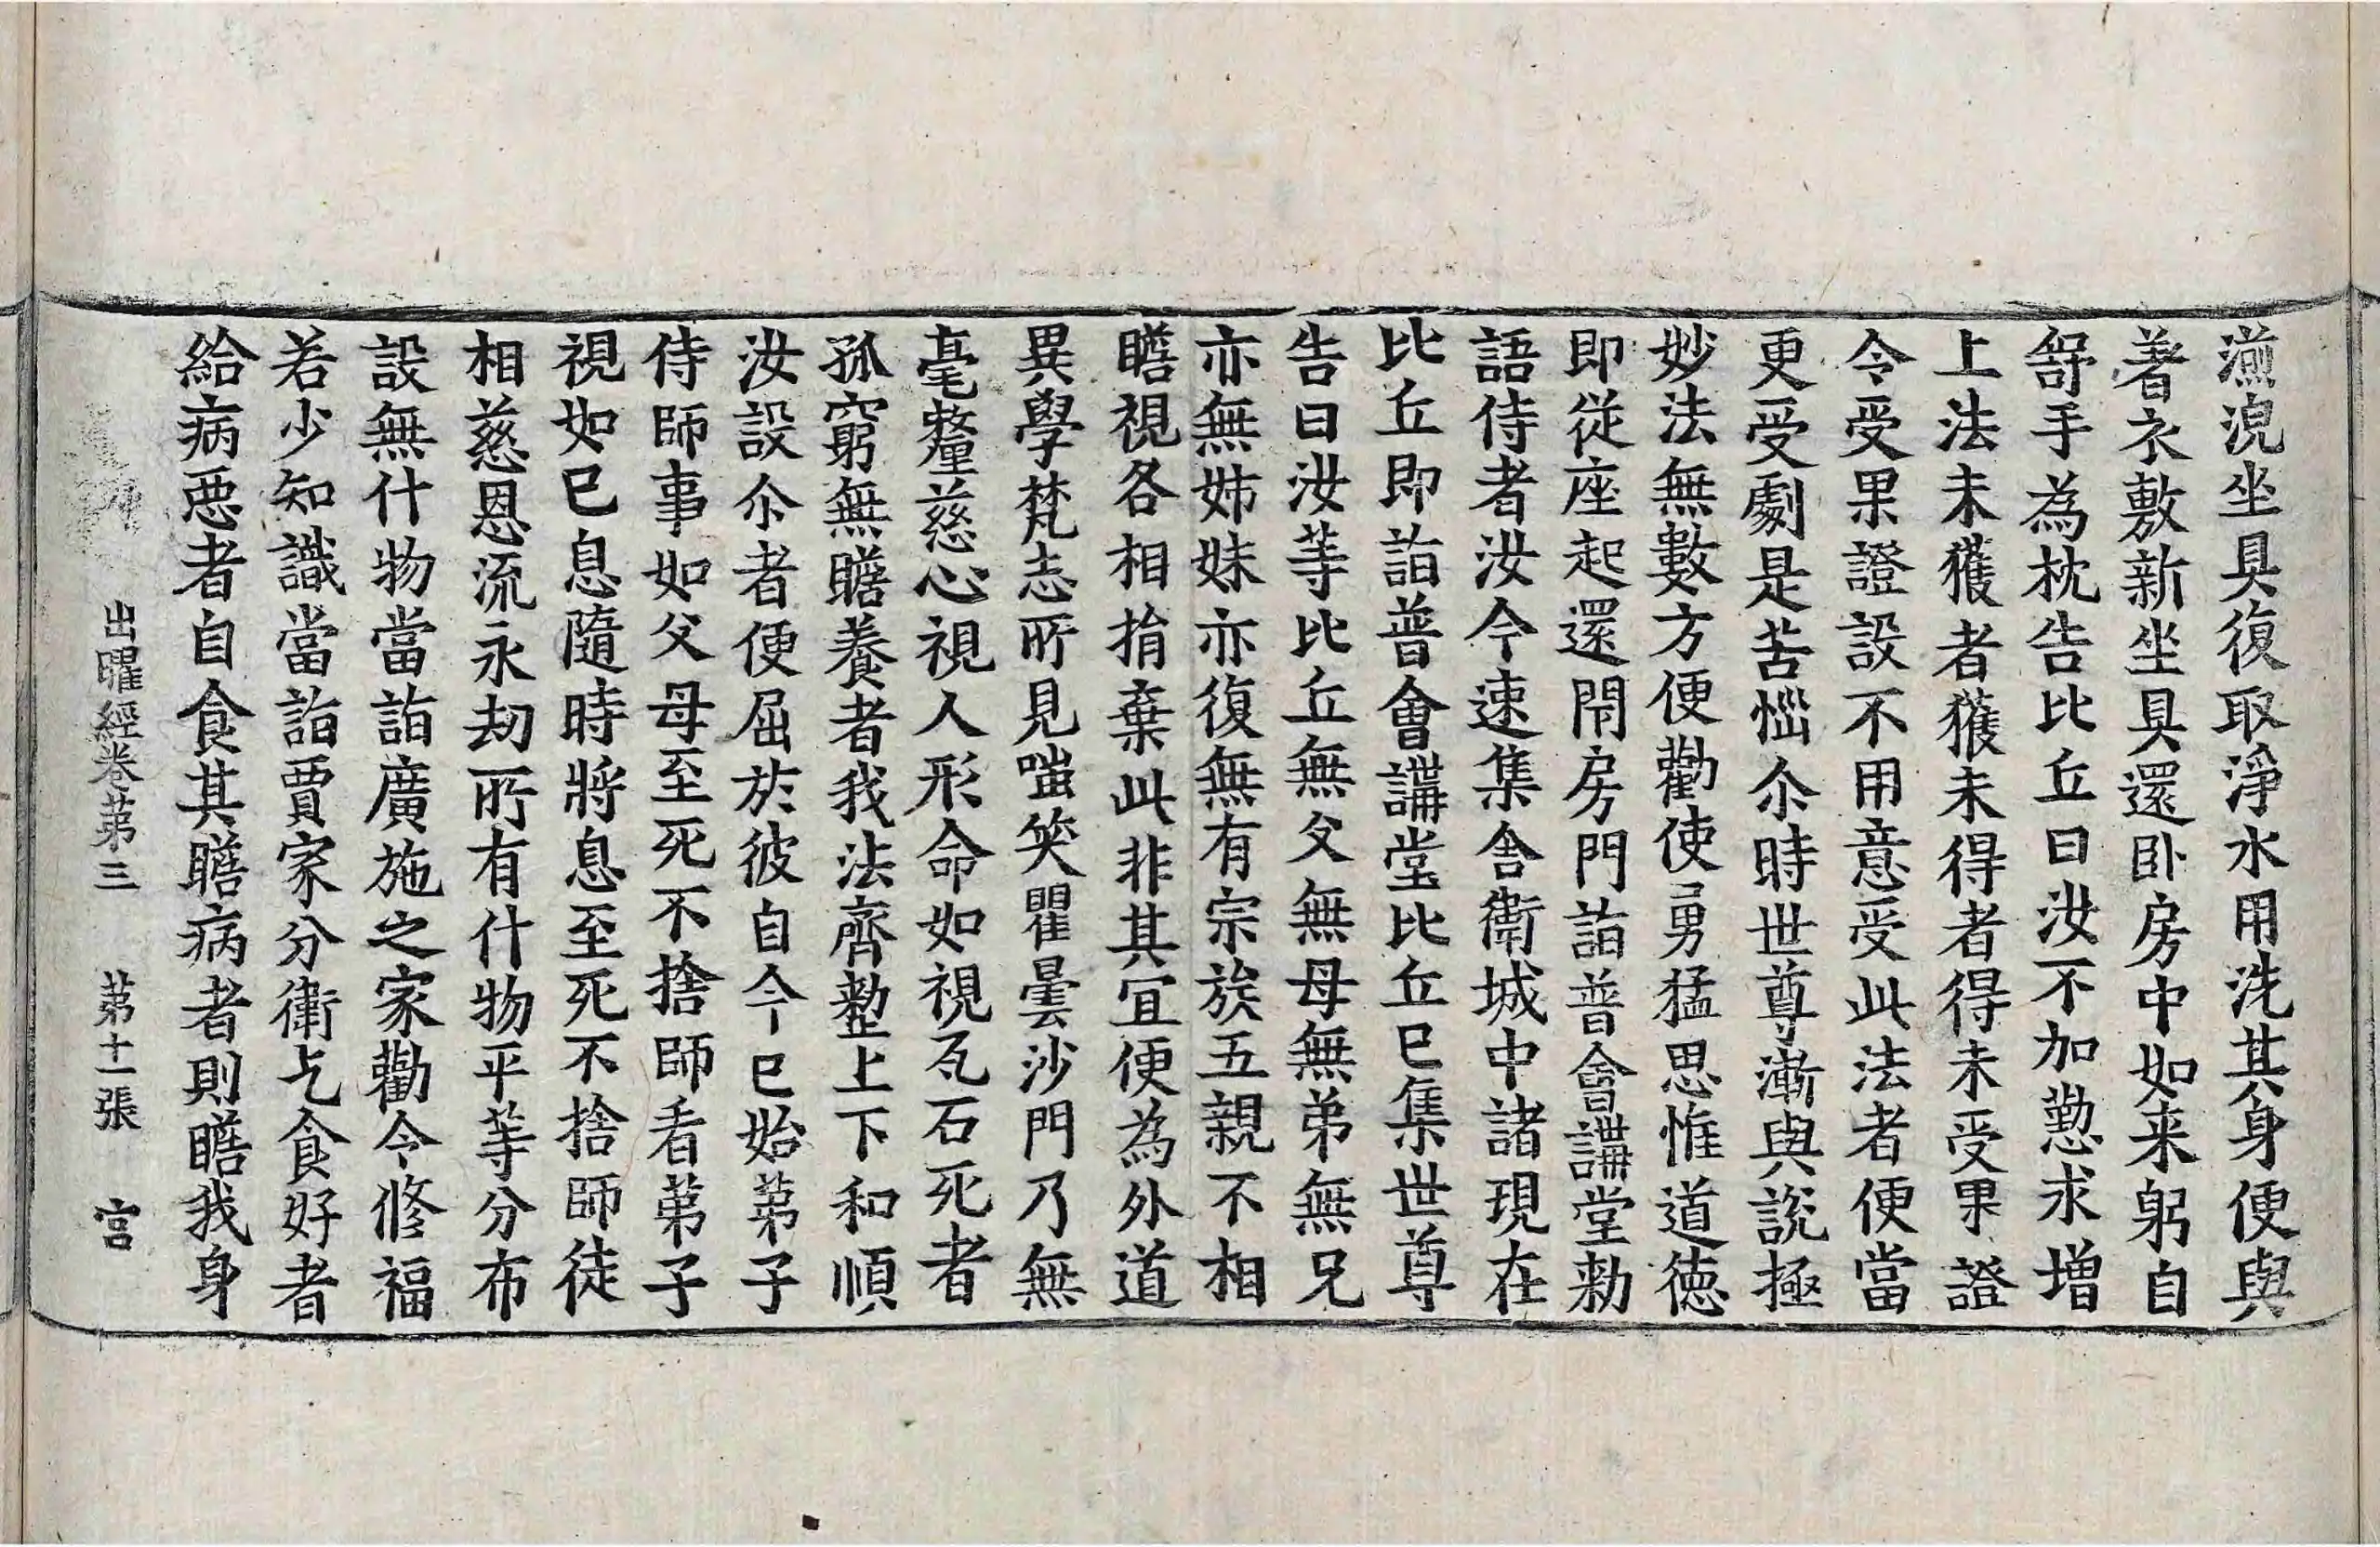 湌浼坐具復取淨水用洗其身便與
著衣敷新坐具還卧房中如来躬自
舒手為枕告比丘曰汝不加懃求增
上法未獲者獲未得者得未受果證
令受果證設不用意受此法者便當
更受劇是苦惱尒時世尊漸與說極
妙法無數方便勸使勇猛思惟道德
即從座起還閇房門詣普會講堂勑
語侍者汝今速集舎衛城中諸現在
比丘即詣普會講堂比丘已集世尊
告曰汝等比丘無父無母無弟無兄
亦無姊妹亦復無有宗族五親不相
瞻視各相捐棄此非其冝便為外道
異學梵志所見嗤笑瞿曇沙門乃無
毫釐慈心視人形命如視瓦石死者
孤窮無瞻養者我法齊整上下和順
汝設尒者便屈於彼自今已始弟子
侍師事如父母至死不捨師看弟子
視如已息隨時將息至死不捨師徒
相慈恩流永劫所有什物平等分布
設無什物當詣廣施之家勸令修福
若少知識當詣賈家分衛乞食好者
給病惡者自食其瞻病者則瞻我身
出曜經卷第三　第十一張　宮